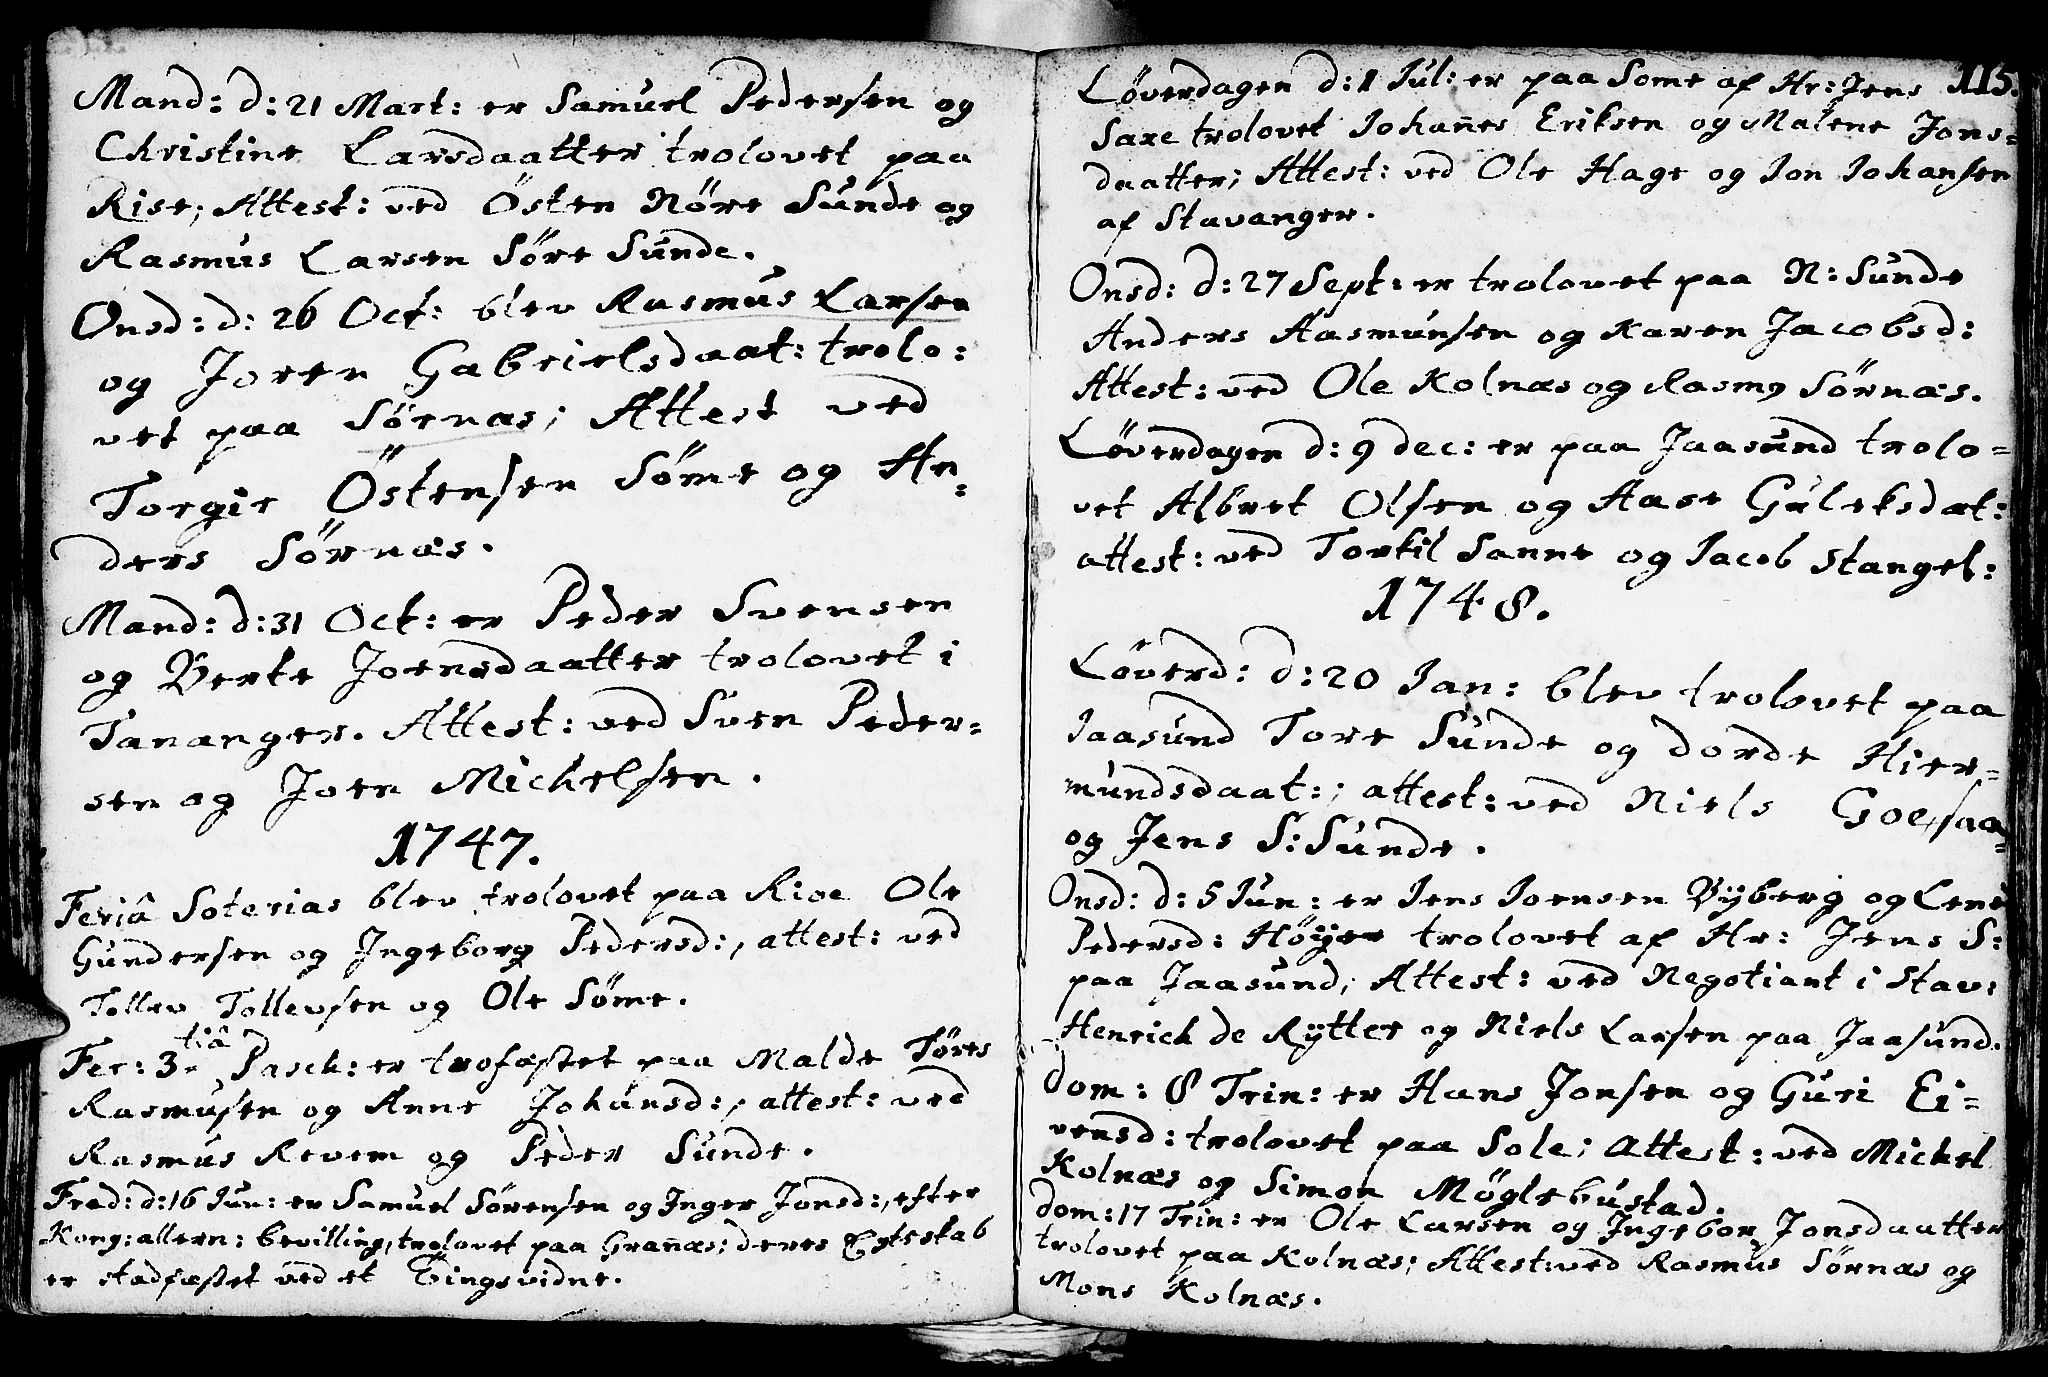 Mand: d: 21 Mart: er Samuel Pedersen og
Christine Larsdaatter trolovet paa
Rise; Attest: ved Østen Nöre Sunde og
Rasmus Larsen Söre Sunde.
Onsd: d: 26 Oct: blev Rasmus Larsen
og Joren Gabrielsdaat: trolo:
vet paa Sörnæs; Attest ved
Torgir Östensen Sömе og An:
ders Sörnæs.
Mand: d: 31 Oct: er Peder Svensen
og Berte Joensdaatter trolovet i
Tananger. Attest: ved Sven Peder=
sen og Joen Michelsen.
1747.
Feriâ Soterias blev trolovet paa Rise Ole
Gundersen og Ingeborg Pedersd:, attest: ved
Tollev Tollevsen og Ole Söme.
Fer: 3tiâ Pasch: er trofæstet paa Malde Töres
Rasmusen og Anne Johansd:, attest: ved
Rasmus Revem og Peder Sunde.
Fred: d: 16 Jun: er Samuel Sörensen og Inger Jonsd:, efter
Kong: allern: bevilling, trolovet paa Grañæs; deres Egteskab
er stadfæstet ved et Tingsvidne.
115.
Löverdagen d: 1 Jul: er paa Some af Hr: Jens
Saxe trolovet Johañes Eriksen og Malene Jons=
daatter; Attest: ved Ole Hage og Jon Johansen
af Stavanger.
Onsd: d: 27 Sept: er trolovet paa N: Sunde
Anders Aasmunsen og Karen Jacobsd:
Attest: ved Ole Kolnæs og Rasmg Sörnæs.
Löverdagen d: 9 dec: er paa Jaasund trolo=
vet Albret Olsen og Aase Guleksdat:
attest: ved Torkil Sanne og Jacob Stangel:
1748.
Löverd: d: 20 Jan: blev trolovet paa
Jaasund Tore Sunde og Dorde Hier=
mundsdaat:; attest: ved Niels Goesaa=
og Jens S: Sunde.
Onsd: d: 5 Jun: er Jens Joensen Byberg og Lene
Pedersd: Höyer trolovet af Hr: Jens S:
paa Jaasund; Attest: ved Negotiant i Stav:
Henrich de Rytter og Niels Larsen paa Jaasund.
Dom: 8 Trin: er Hans Jonsen og Guri Ei=
vensd: trolovet paa Sole; Attest: ved Michel
Kolnæs og Simon Möglebustad.
Dom: 17 Trin: er Ole Larsen og Ingebor Jonsdaatter
trolovet paa Kolnæs; Attest: ved Rasmus Sörnæs og
Mons Kolnæs.